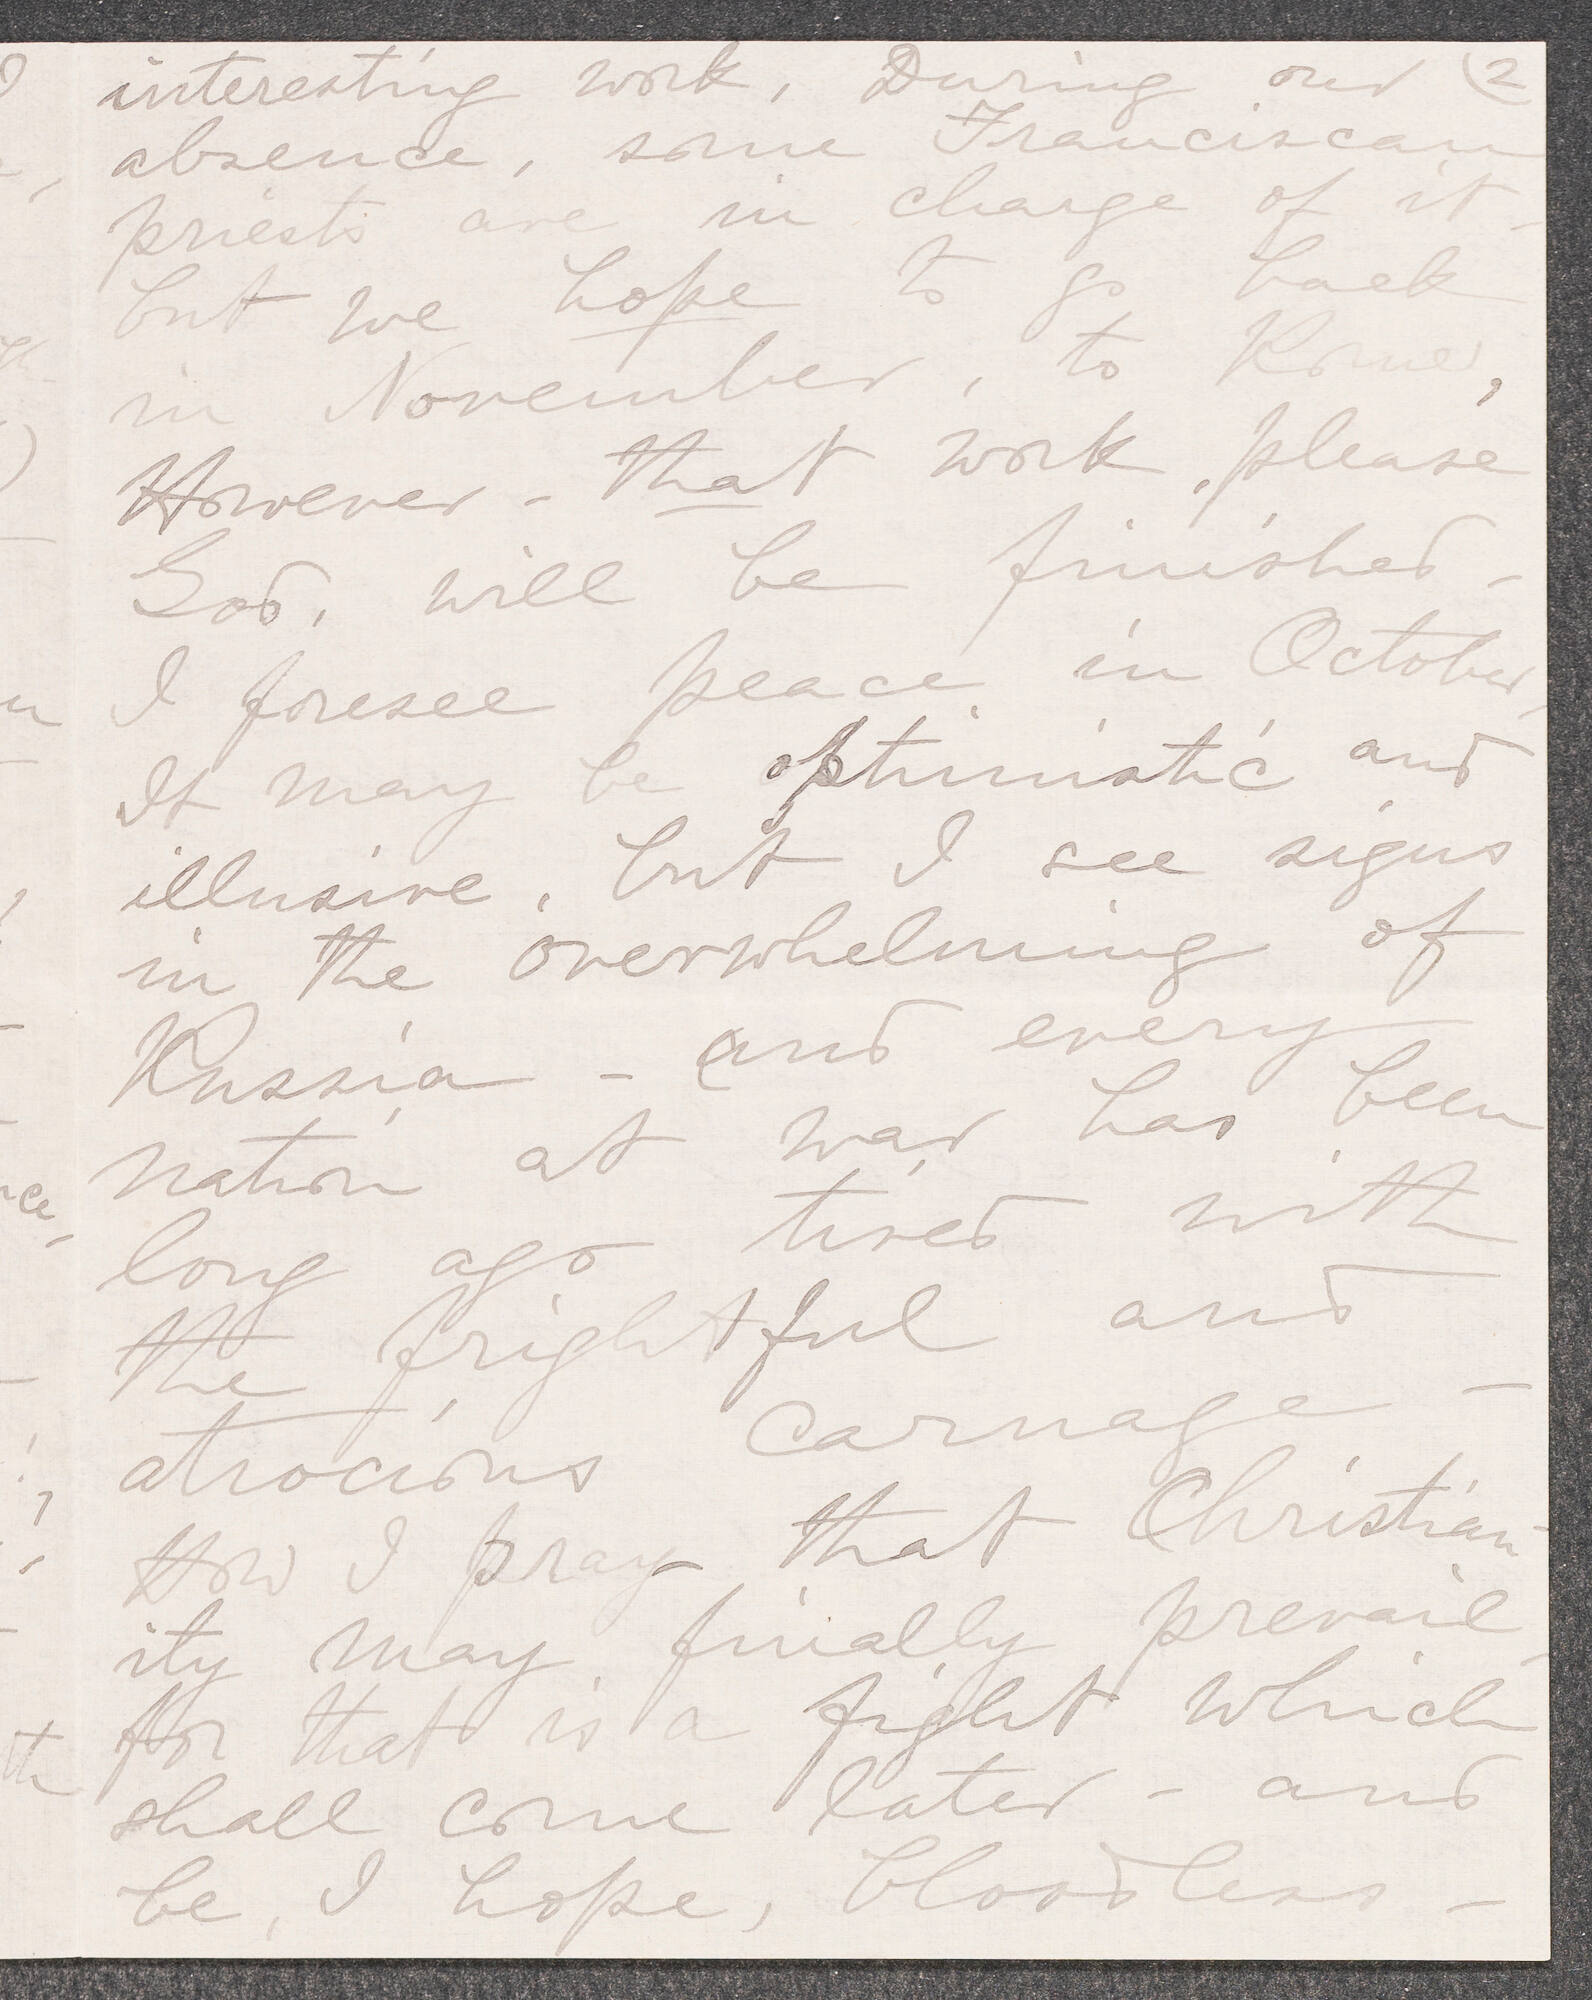 interesting work. During our (2
absence, some Franciscan
priests are in charge of it -
but we hope to go back
in November, to Rome,
However - that work, please
God, will be finished -
I foresee peace in October,
It may be optimistic and
illusive, but I see signs
in the overwhelming of
Russia - and every
nation at war has been
long ago tired with
the frightful and
atrocious carnage -
How I pray that Christian-
ity may finally prevail,
for that is a fight which
shall come later - and
be, I hope, bloodless -